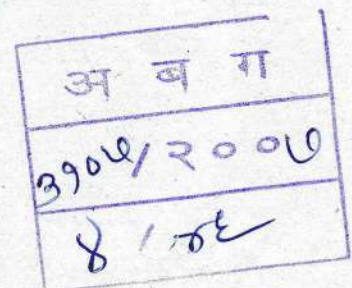 अ ब ग
३१०५/२००७
४/४६